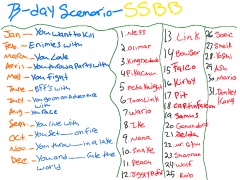 B-day Scenario - SSBB
Jan - You want to kill
Feb - Enimies with
March - You Date
April - You throw a Party with
May - You fight
June - BFF's with
July - You go on an Adventure with
Aug - You face
Sept - You live with
Oct - You set _ on fire
Nov - You throw _ in a lake
Dec - You and _ rule the world
1. Ness
2. Olimar
3. King Dedede
4. Pikachu
5. Meta Knight
6. Toon Link
7. Wario
8. Ike
9. Nana
10. Snake
11. Peach
12. Jigglypuff
13. Link
14. Bowser
15. Falco
16. Kirby
17. Pit
18. Captin Falcon
19. Samus
20. Ganondorf
21. Zelda
22. Mr. G&W
23. Charizard
24. Wolf
25. Rob
26. Sonic
27. Sheik
28. Yoshi
29. Ash
30. Mario
31. Donkey Kong